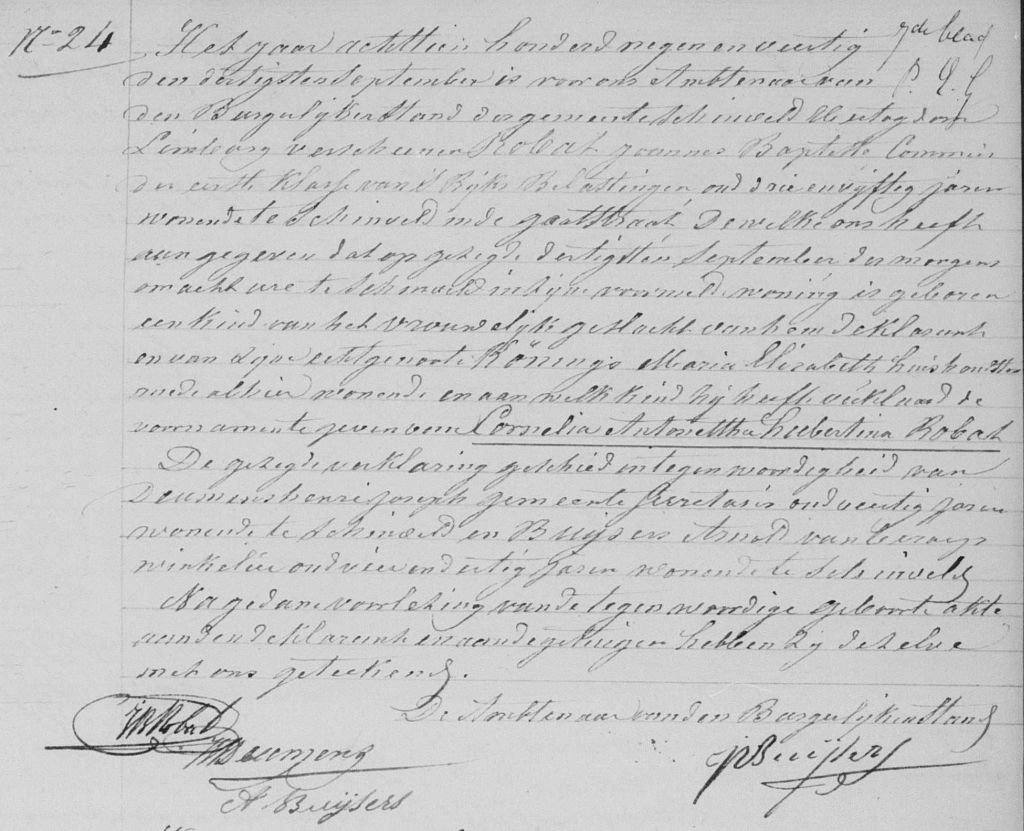 No 24
7de blad
Het jaar achttien honderd negen en veertig
den dertigsten September is voor ons Ambtenaar van
den Burgerlijken Stand der gemeente Schinveld Hertogdom
Limburg verscheenen Robat Joannes Baptiste Commies
der eerste klasse van 's Rijks Belastingen oud drie en vijftig jaren
wonende te Schinveld in de gaatstraat De welke ons heeft
aan gegeven dat op gezegde dertigsten September des morgens
om acht ure te Schinveld in zijne voormeld woning is geboren
een kind van het vrouwelijk geslacht van hem deklarant
en van zijne echtgenoote Könings Maria Elizabeth huishoudster
mede alhier wonende en aan welk kind hij heeft verklaard de
voornaam te geven van Cornelia Antonettha Hubertina Robat
De gezegde verklaring geschied in tegenwoordigheid van
Deumens henri joseph gemeente Secretaris oud veertig jaren
wonende te Schinveld en Buijsers Arnold van beroep
winkelier oud vier en dertig jaren wonende te Schinveld
Na gedane voorlezing van de tegenwoordige geboorte akte
aan den deklarant en aan de getuigen hebben zij dezelve
met ons geteekend.
De Ambtenaar van den Burgerlijken Stand
JB Robat
Deumens
JBuijsers
A Buijsers